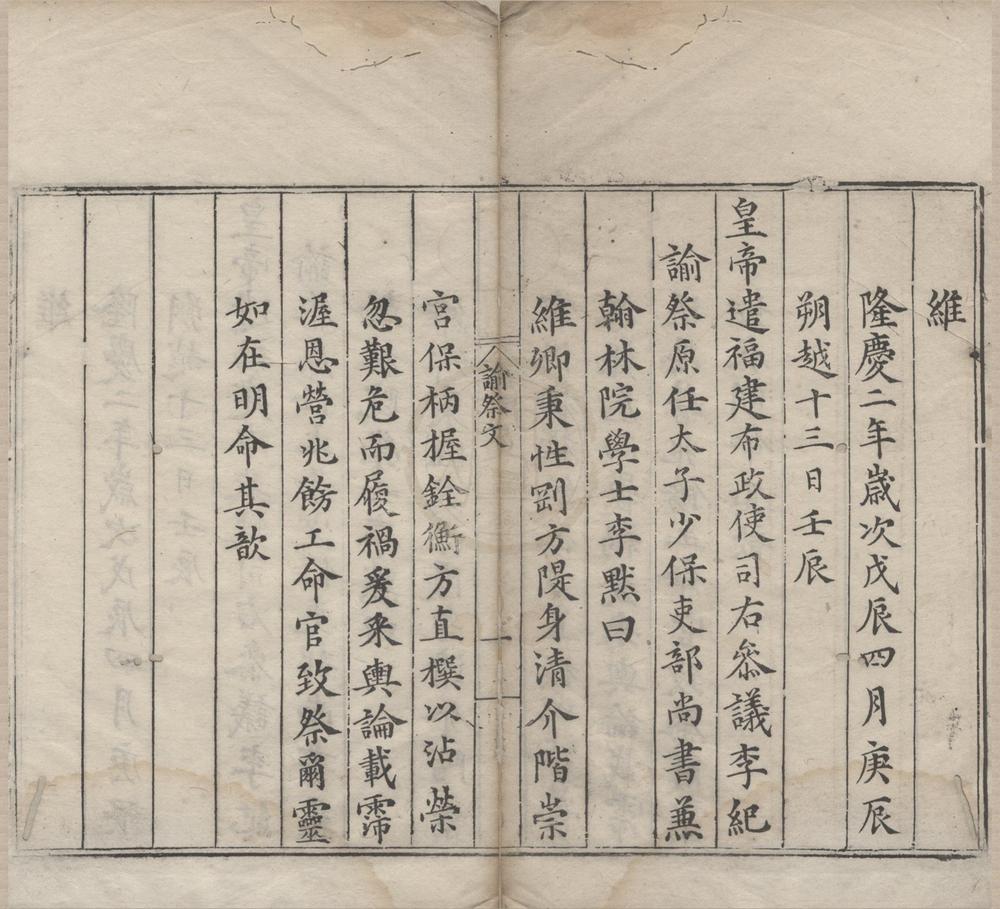 維
隆慶二年歲次戊辰四月庚辰
朔越十三日壬辰
皇帝遣福建布政使司右叅議李紀
諭祭原任太子少保吏部尚書兼
翰林院學士李默曰
維卿秉性剛方隄身清介階崇
諭祭文
一
宮保柄握銓衡方直撰以沾榮
忽艱危而履禍爰采輿論載霈
渥恩營兆餝工命官致祭爾靈
如在明命其歆